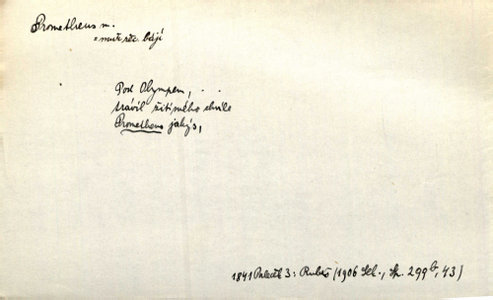 Prometheus m.
= muž řec. bájí
Pod Olympem, . .
trávil žití mého chvíle
Prometheus jakýs,
1841 Paleček 3: Rubeš (1906 Sel., str. 299b, 43)